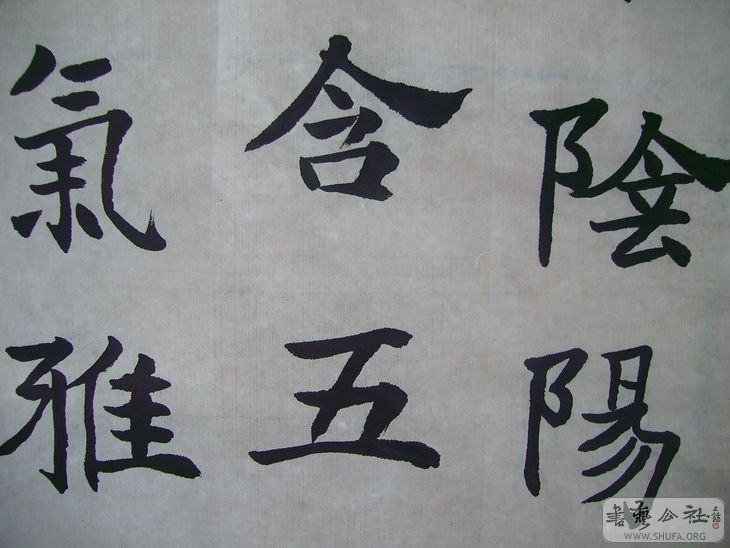 陰陽
含五
氣雅
書藝公社
WWW.SHUFA.ORG